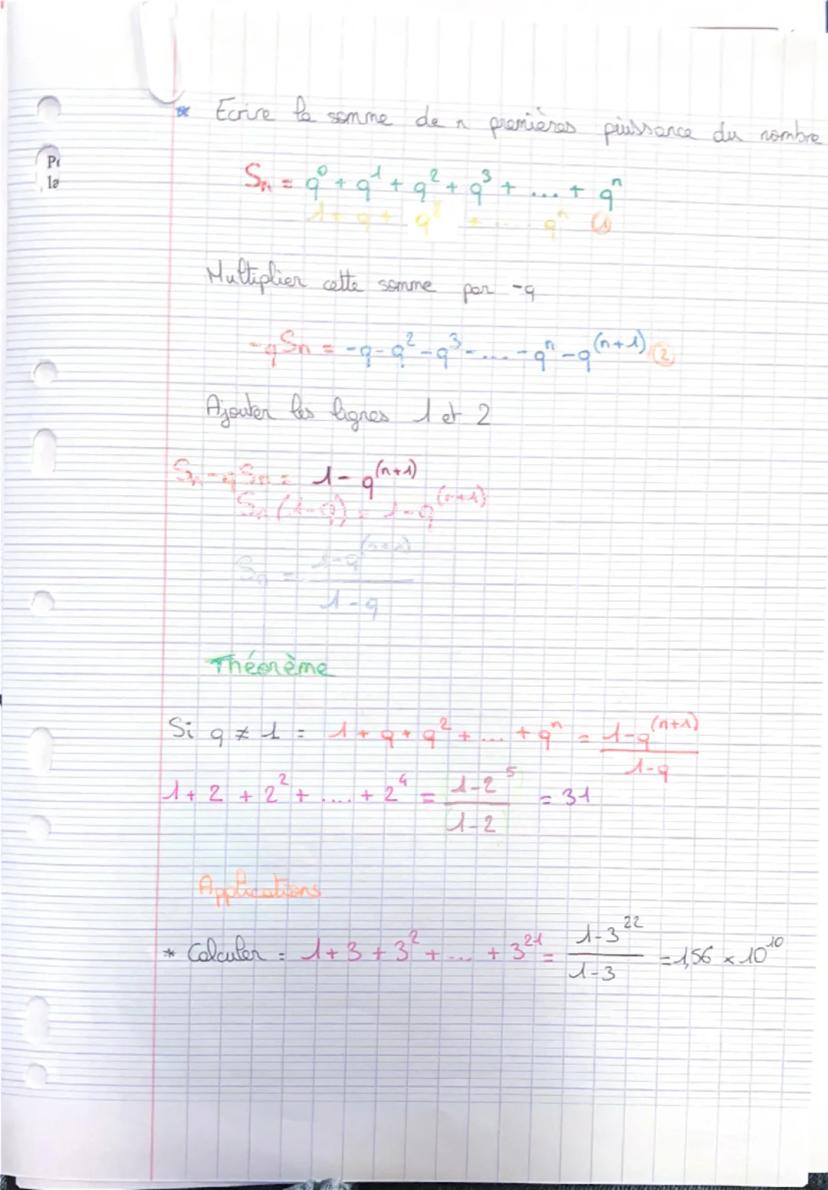 * Ecrire la somme de n premières puissance du nombre
Sn = q⁰ + q¹ + q² + q³ + ... + qⁿ
1 + q + q² + ... qⁿ (1)
Multiplier cette somme par -q
-qSn = -q - q² - q³ - .... - qⁿ - q⁽ⁿ⁺¹⁾ (2)
Ajouter les lignes 1 et 2
Sn - qSn = 1 - q⁽ⁿ⁺¹⁾
Sn (1-q) = 1-q⁽ⁿ⁺¹⁾
Sn = (1-q⁽ⁿ⁺¹⁾)/(1-q)
Théorème
Si q ≠ 1 = 1 + q + q² + ... + qⁿ = (1-q⁽ⁿ⁺¹⁾)/(1-q)
1 + 2 + 2² + .... + 2⁴ = (1-2⁵)/(1-2) = 31
Applications
* Calculer = 1 + 3 + 3² + ... + 3²¹ = (1-3²²)/(1-3) = 1,56 × 10¹⁰